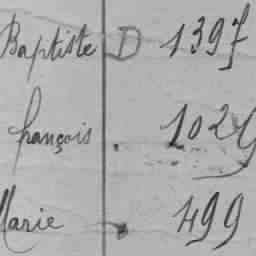 Baptiste D 1397
françois . 1029
Marie 499